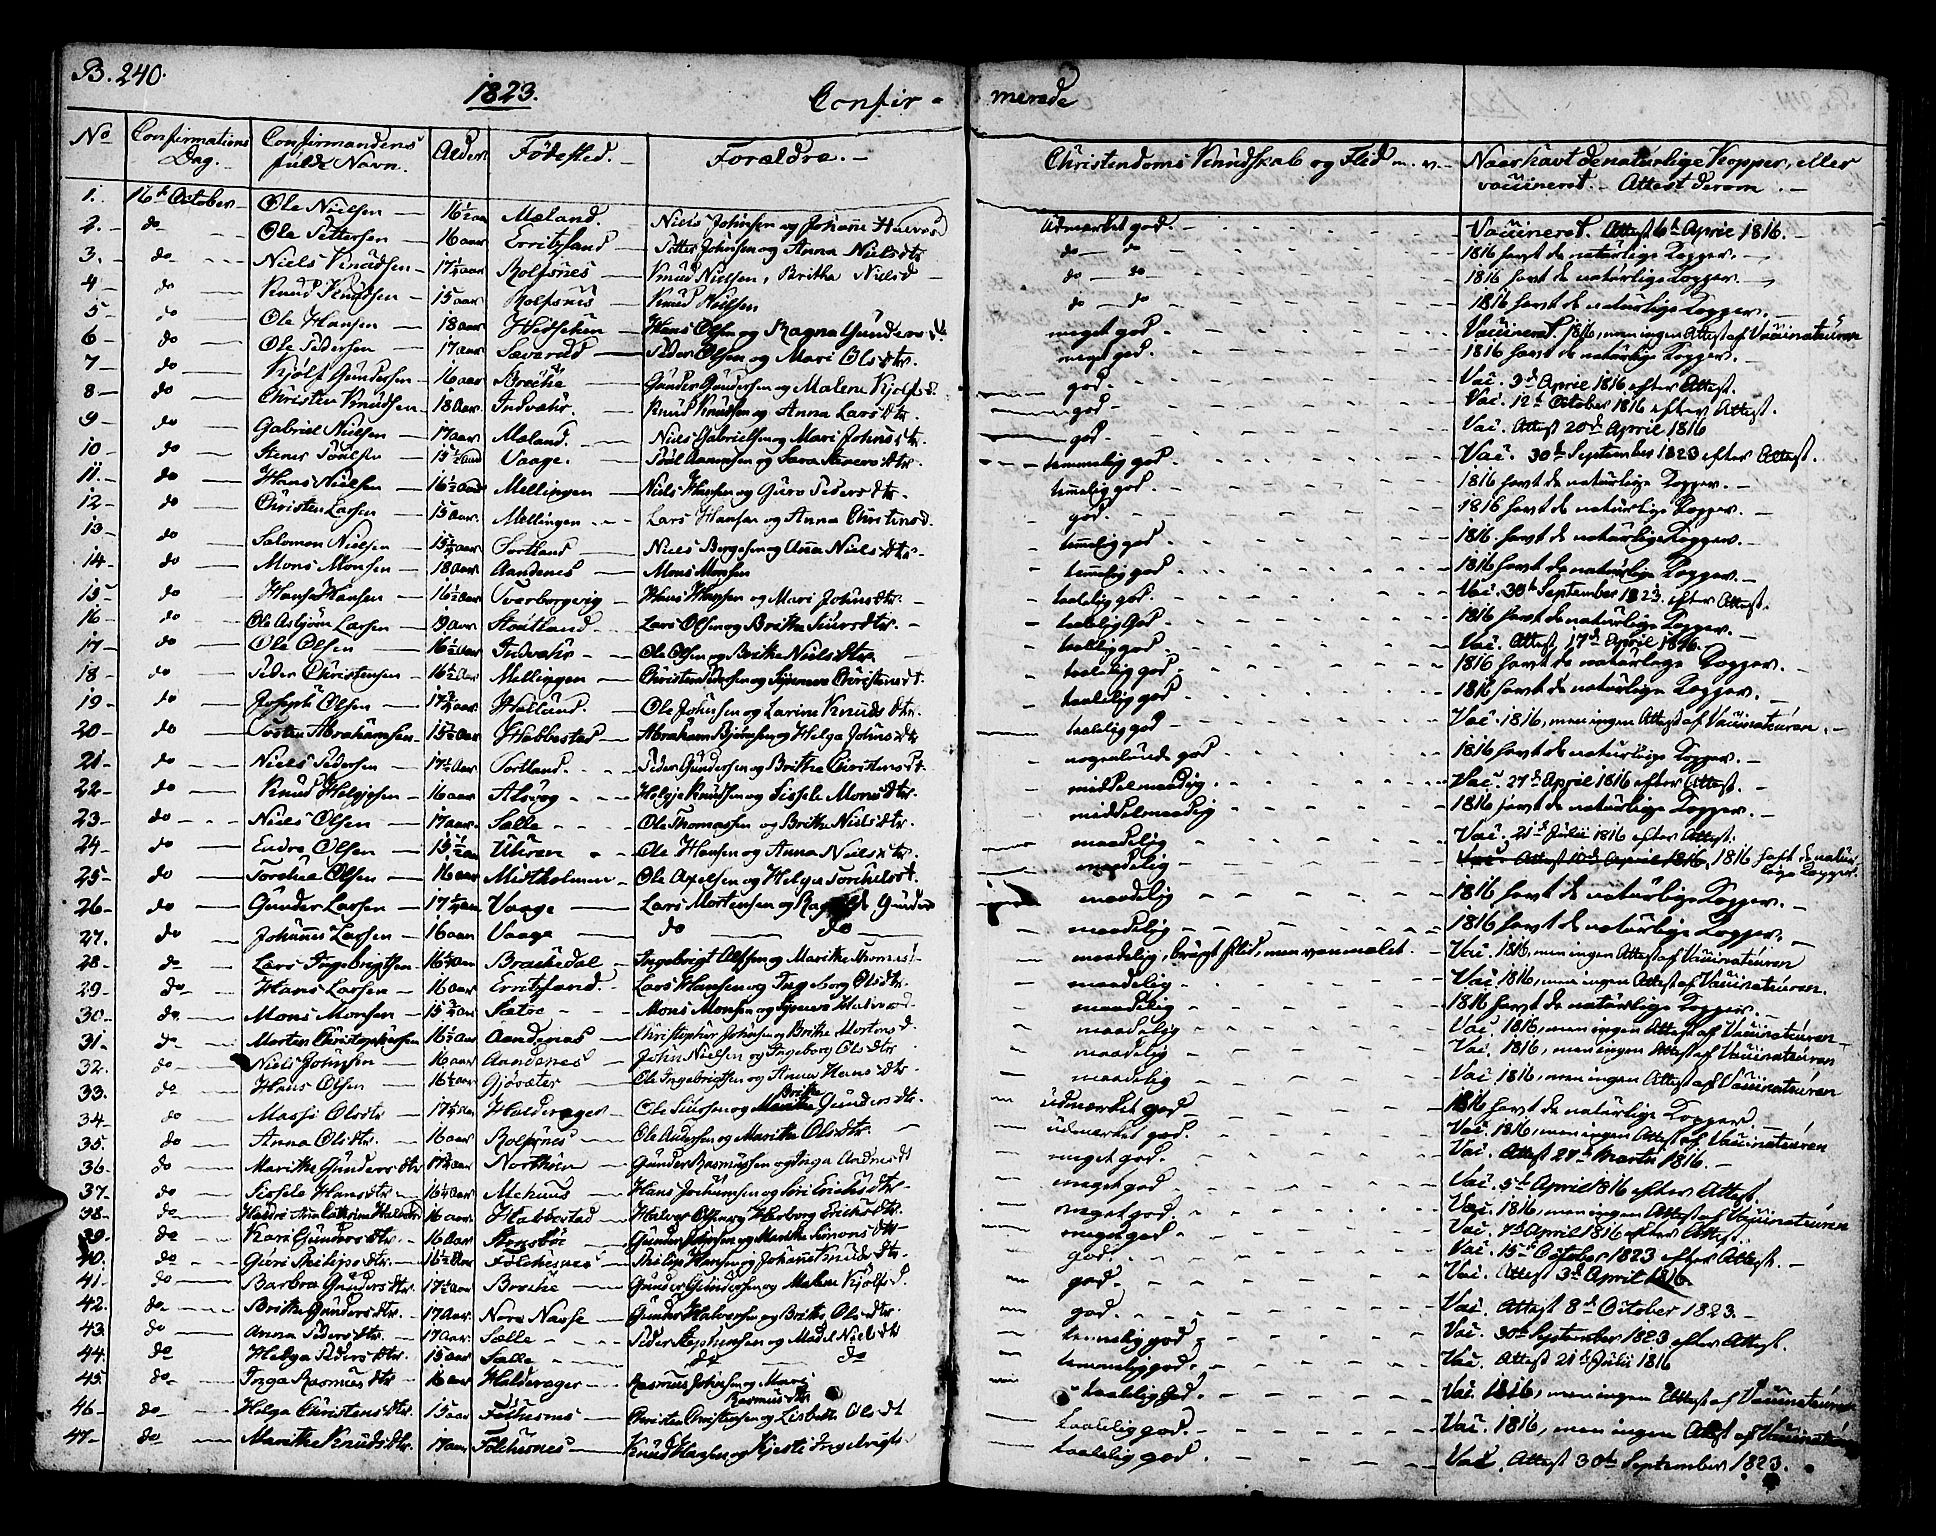 B. 240.
1823.
Confir- merede
No Confirmations Dag. Confirmandens fulde Navn. Alder Fødested. Forældre. Christendoms Kundskab og Flid m. v. Naar havt de natürlige Kopper, eller vaccineret. Attest derom.
1. 16de October Ole Nielsen 16½ aar Mæland. Niels Johnsen og Johanne Halvord Udmærket god. Vaccineret. Attest 6te April 1816.
2. do Ole Pettersen 16 aar Erritsland Petter Johnsen og Anna Nielsdtr do do 1816 havt de natürlige Kopper.
3. do Niels Knudsen 17½ aar Rolfsnes Knud Nielsen, Brithe Nielsd do do 1816 havt de natürlige Kopper.
4 do Knud Knudsen 15 aar Rolfsnes Knud Nielsen do do 1816 havt de natürlige Kopper.
5 do Ole Hansen 18 aar Hans Olsen og Ragna Gunders meget god. Vaccineret 1816, men ingen Attest af Vaccinateuren
6 do Ole Pedersen 17 aar Peder Olsen og Mari Olsdtr. meget god. 1816 havt de natürlige Kopper.
7 do Kjolf Gundersen 16 aar Gunder Gundersen og Malene Kjolfsd. god. Vac. 3de April 1816 efter Attest.
8 do Christen Knudsen 18 Aar Indvahr. Knud Knudsen og Anna Larsdtr. god Vac. 12te October 1816 efter Attest.
9 do Gabriel Nielsen 17 aar Mæland. Niels Gabrielsen og Mari Johnsdtr. god Vac. Attest 20de April 1816
10 do 15½ Aar Vaage. temmelig god. Vac. 30te September 1823 efter Attest.
11. do Hans Nielsen 16½ Aar Mellingen Niels Hansen og Guro Pedersdtr. temelig god. 1816 havt de natürlige Kopper.
12 do Christen Larsen 15 aar. Mellingen Lars Hansen og Anna Christensd. god. 1816 havt de natürlige Kopper.
13 do Salomon Nielsen Fortland Niels Bergesen og Anna Nielsdtr. temelig god 1816 havt de natürlige Kopper.
14 do Mons Monsen 18 Aar Aandenes Mons Monsen temelig god 1816 havt de natürlige Kopper.
15 do Hans Hansen 16½ Aar Tverborgvig Hans Hansen og Mari Johnsdtr. taalelig god. Vac. 30te September 1823. efter Attest.
16 do Ole Asbjørn Larsen 19 Aar. Lars Olsen og Brithe Siursdtr. taalelig god. 1816 havt de natürlige Kopper.
17 do Ole Olsen 16½ Aar Indvahr Ole Olsen og Brithe Nielsdtr. taalelig god Vac. Attest 17de April 1816.
18 do Peder Christensen 16½ Aar Mellingen Christen Pedersen og Synneve Christensdt. taalelig god 1816 havt de natürlige Kopper.
19 do Joseph Olsen Halland. Ole Johnsen og Larine Knudsdtr. taalelig god 1816 havt de natürlige Kopper.
20 do Abrahamsen 15½ Aar Habbestad Abraham Bjørnsen og Helga Johnsdtr taalelig god Vac. 1816, men ingen Attest af Vaccinateuren.
21 do Niels Pedersen 17½ Aar Fortland. Peder Gundersen og Brithe Christensdt. nogenlunde god 1816 havt de natürlige Kopper.
22 do Knud Helgesen 16 aar Alsvog Helge Knudsen og Sissele Monsdtr. middelmaadig. Vac. 27de April 1816 efter Attest.
23 do Niels Olsen 17 aar Sælle Ole Thomassen og Brithe Nielsdtr. middelmaadig 1816 havt de natürlige Kopper.
24 do Endre Olsen 15½ aar Ole Hansen og Anna Nielsdtr. maadelig Vac. 21de Julii 1816 efter Attest.
25 do Olsen 16 aar Midtholmen Ole Axelsen og Helga Torchelsdt. maadelig 1816 havt de natürlige Kopper.
26 do Gunder Larsen 17½ aar Vaage Lars Mortensen og Gunders maadelig 1816 havt de natürlige Kopper.
27. do Johannes Larsen 16 aar Vaage do do maadelig 1816 havt de natürlige Kopper.
28 do Lars Ingebrigtsen Brachedal Ingebrigt og Marithe Thomas maadelig, brugt Flid, men Vac. 1816, men ingen Attest af Vaccinateuren
29 do Hans Larsen 16 aar Erritsland. Lars Hansen og Ingeborg Olsdtr. maadelig Vac. 1816, men ingen Attest af Vaccinateuren.
30 do Mons Monsen Sætre Mons Monsen og Synneve Halvord maadelig 1816 havt de natürlige Kopper.
31 do Morten Christophersen 16½ Aar Aandenes Christopher Johnsen og Brithe Mortensd. maadelig Vac. 1816, men ingen Attest af Vaccinateuren
32. do Niels Johnsen 16 aar Aandenes John Nielsen og Ingeborg Olsdtr. maadelig Vac. 1816, men ingen Attest af Vaccinateuren
33. do Hans Olsen Gjøvæter Ole Ingebrigtsen og Anna Hansdtr. maadelig Vac. 1816, men ingen Attest af Vaccinateuren
34 do Massi Olsdtr Haldorager Ole Siursen og Brithe Gundersdtr. udmærket god 1816 havt de natürlige Kopper.
35. do Anna Olsdtr. 16 aar Rolfsnes Ole Andersen og Marithe Olsdtr. udmærket god. Vac. 1816, men ingen Attest af Vaccinateuren
36 do Marithe Gundersdtr Gunder Rasmussen og Inga meget god. Vac. Attest 27de Martii 1816.
37 do Sissele Hansdtr Hans Jochumsen og Erichsdtr. meget god Vac. 5te April 1816 efter Attest.
38 do 16 aar Habbestad Halvor Olsen og Herborg Erichsdtr. meget god. Vac. 1816, men ingen Attest af Vaccinateuren
39. do Kari Gundersdtr. 16 Aar Gunder Johnsen og Marithe Simonsdtr meget god Vac. 7de April 1816 efter Attest.
40. do Guri Philipsdtr. 16½ Aar Philip Hansen og Johanne Knudsdtr. god. Vac. 15de October 1823 efter Attest.
41. do Barbra Gundersdtr. 17½ aar Gunder Gundersen og Malene Kjolfsd. god. Vac. Attest 3de April 1816
42. do Brithe Gundersdtr. 17 Aar Nore Naasse Gunder Halvorsen og Brithe Olsdtr. god. Vac. Attest 8de October 1823.
43. do Anna Pedersdtr. 17 Aar Sælle Peder Stephensen og Madel Nielsdtr temmelig god Vac. 30te September 1823 efter Attest.
44. do Helga Pedersdtr. 15 Aar Sælle do do temmelig god. Vac. Attest 21de Julii 1816
45. do Inga Rasmusdtr 16 aar Haldorager Rasmus Johnsen og Mari Rasmusdtr. taalelig god. Vac. 1816, men ingen Attest af Vaccinateuren
46 do Helga Christensdtr. 15 aar Christen Christensen og Lisbeth Olsdt taalelig god. Vac. 1816, men ingen Attest af Vaccinateuren
47 do Marithe Knudsdtr. 17 aar Knud Hansen og Kjersti Ingebrigts taalelig god. Vac. Attest 30te September 1823.